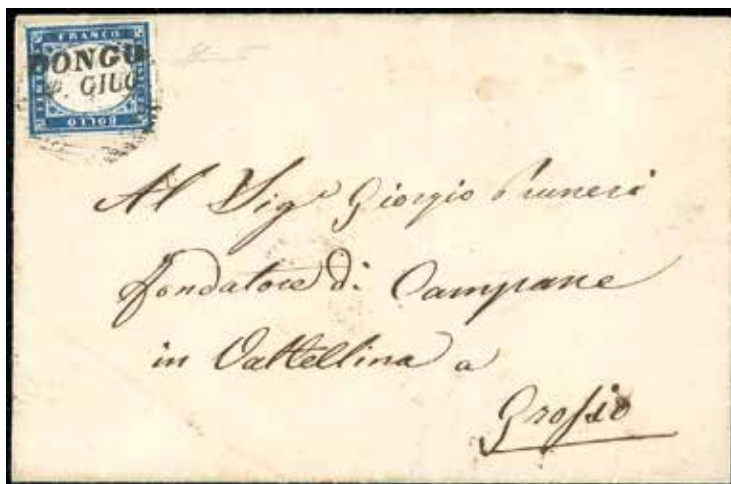 FRANCO
BOLLO
DONGO
GIUG
Al Sigr Giorgio Pruneri
fondatore di Campane
in Valtellina a
Grosio